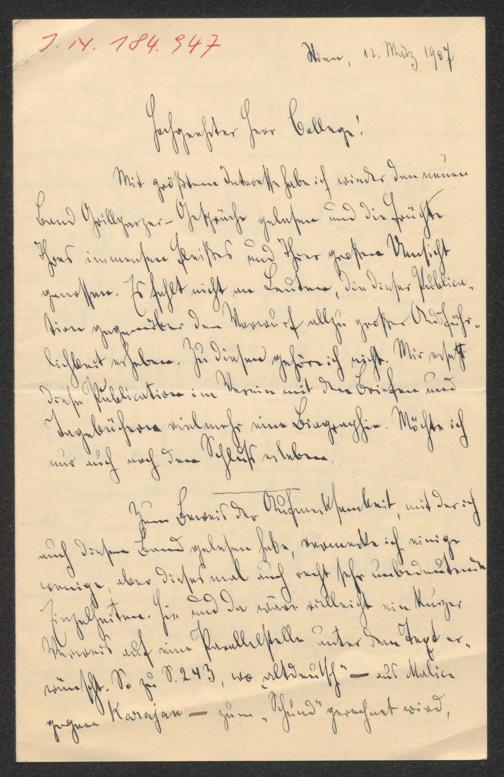 I. N. 184.947
Wien, 12. März 1907
Hochgeehrter Herr College!
Mit größtem Interesse habe ich wieder den neuen
Band Grillparzer-Gespräche gelesen und die Früchte
Ihres immensen Fleißes und Ihrer großen Umsicht
genossen. Es fehlt nicht an Leuten, die dieser Publica-
tion gegenüber den Vorwurf allzu großer Ausführ-
lichkeit erheben. Zu diesen gehöre ich nicht. Mir ersetzt
diese Publication im Verein mit den Briefen und
Tagebüchern vielmehr eine Biographie. Möchte ich
nur auch noch den Schluß erleben.
Zum Beweis der Aufmerksamkeit, mit der ich
auch diesen Band gelesen habe, vermerke ich einige
wenige, aber dieses mal auch recht sehr unbedeutende
Einzelheiten. Hie und da wäre vielleicht ein kurzer
Verweis auf eine Parallelstelle unter dem Text er-
wünscht. So zu S. 243, wo „altdeutsch" — aus Malice
gegen Karajan — zum „Schund" gerechnet wird,